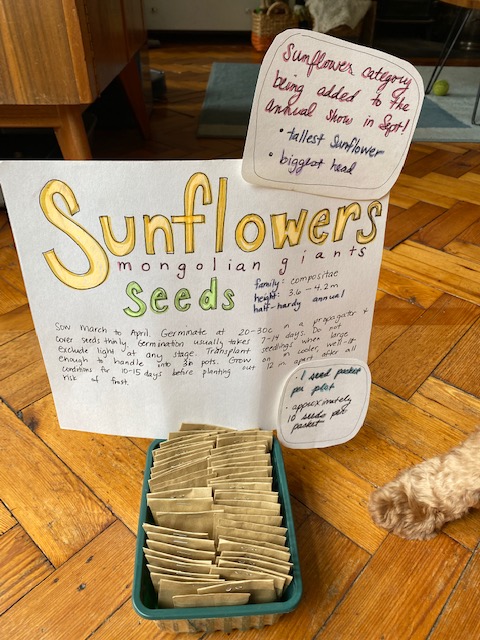 Sunflower category
being added to the
annual show in Sept!
• tallest sunflower
• biggest head
Sunflowers
mongolian giants
Seeds
family: compositae
height: 3.6 - 4.2m
half-hardy annual
Sow March to April. Germinate at 20-30c in a propagator &
cover seeds thinly. Germination usually takes 7-14 days. Do not
exclude light at any stage. Transplant seedlings when large
enough to handle into 3in pots. Grow on in cooler well-lit
conditions for 10-15 days before planting out 12 in apart after all
risk of frost.
• 1 seed packet
per plot
• approximately
10 seeds per
packet